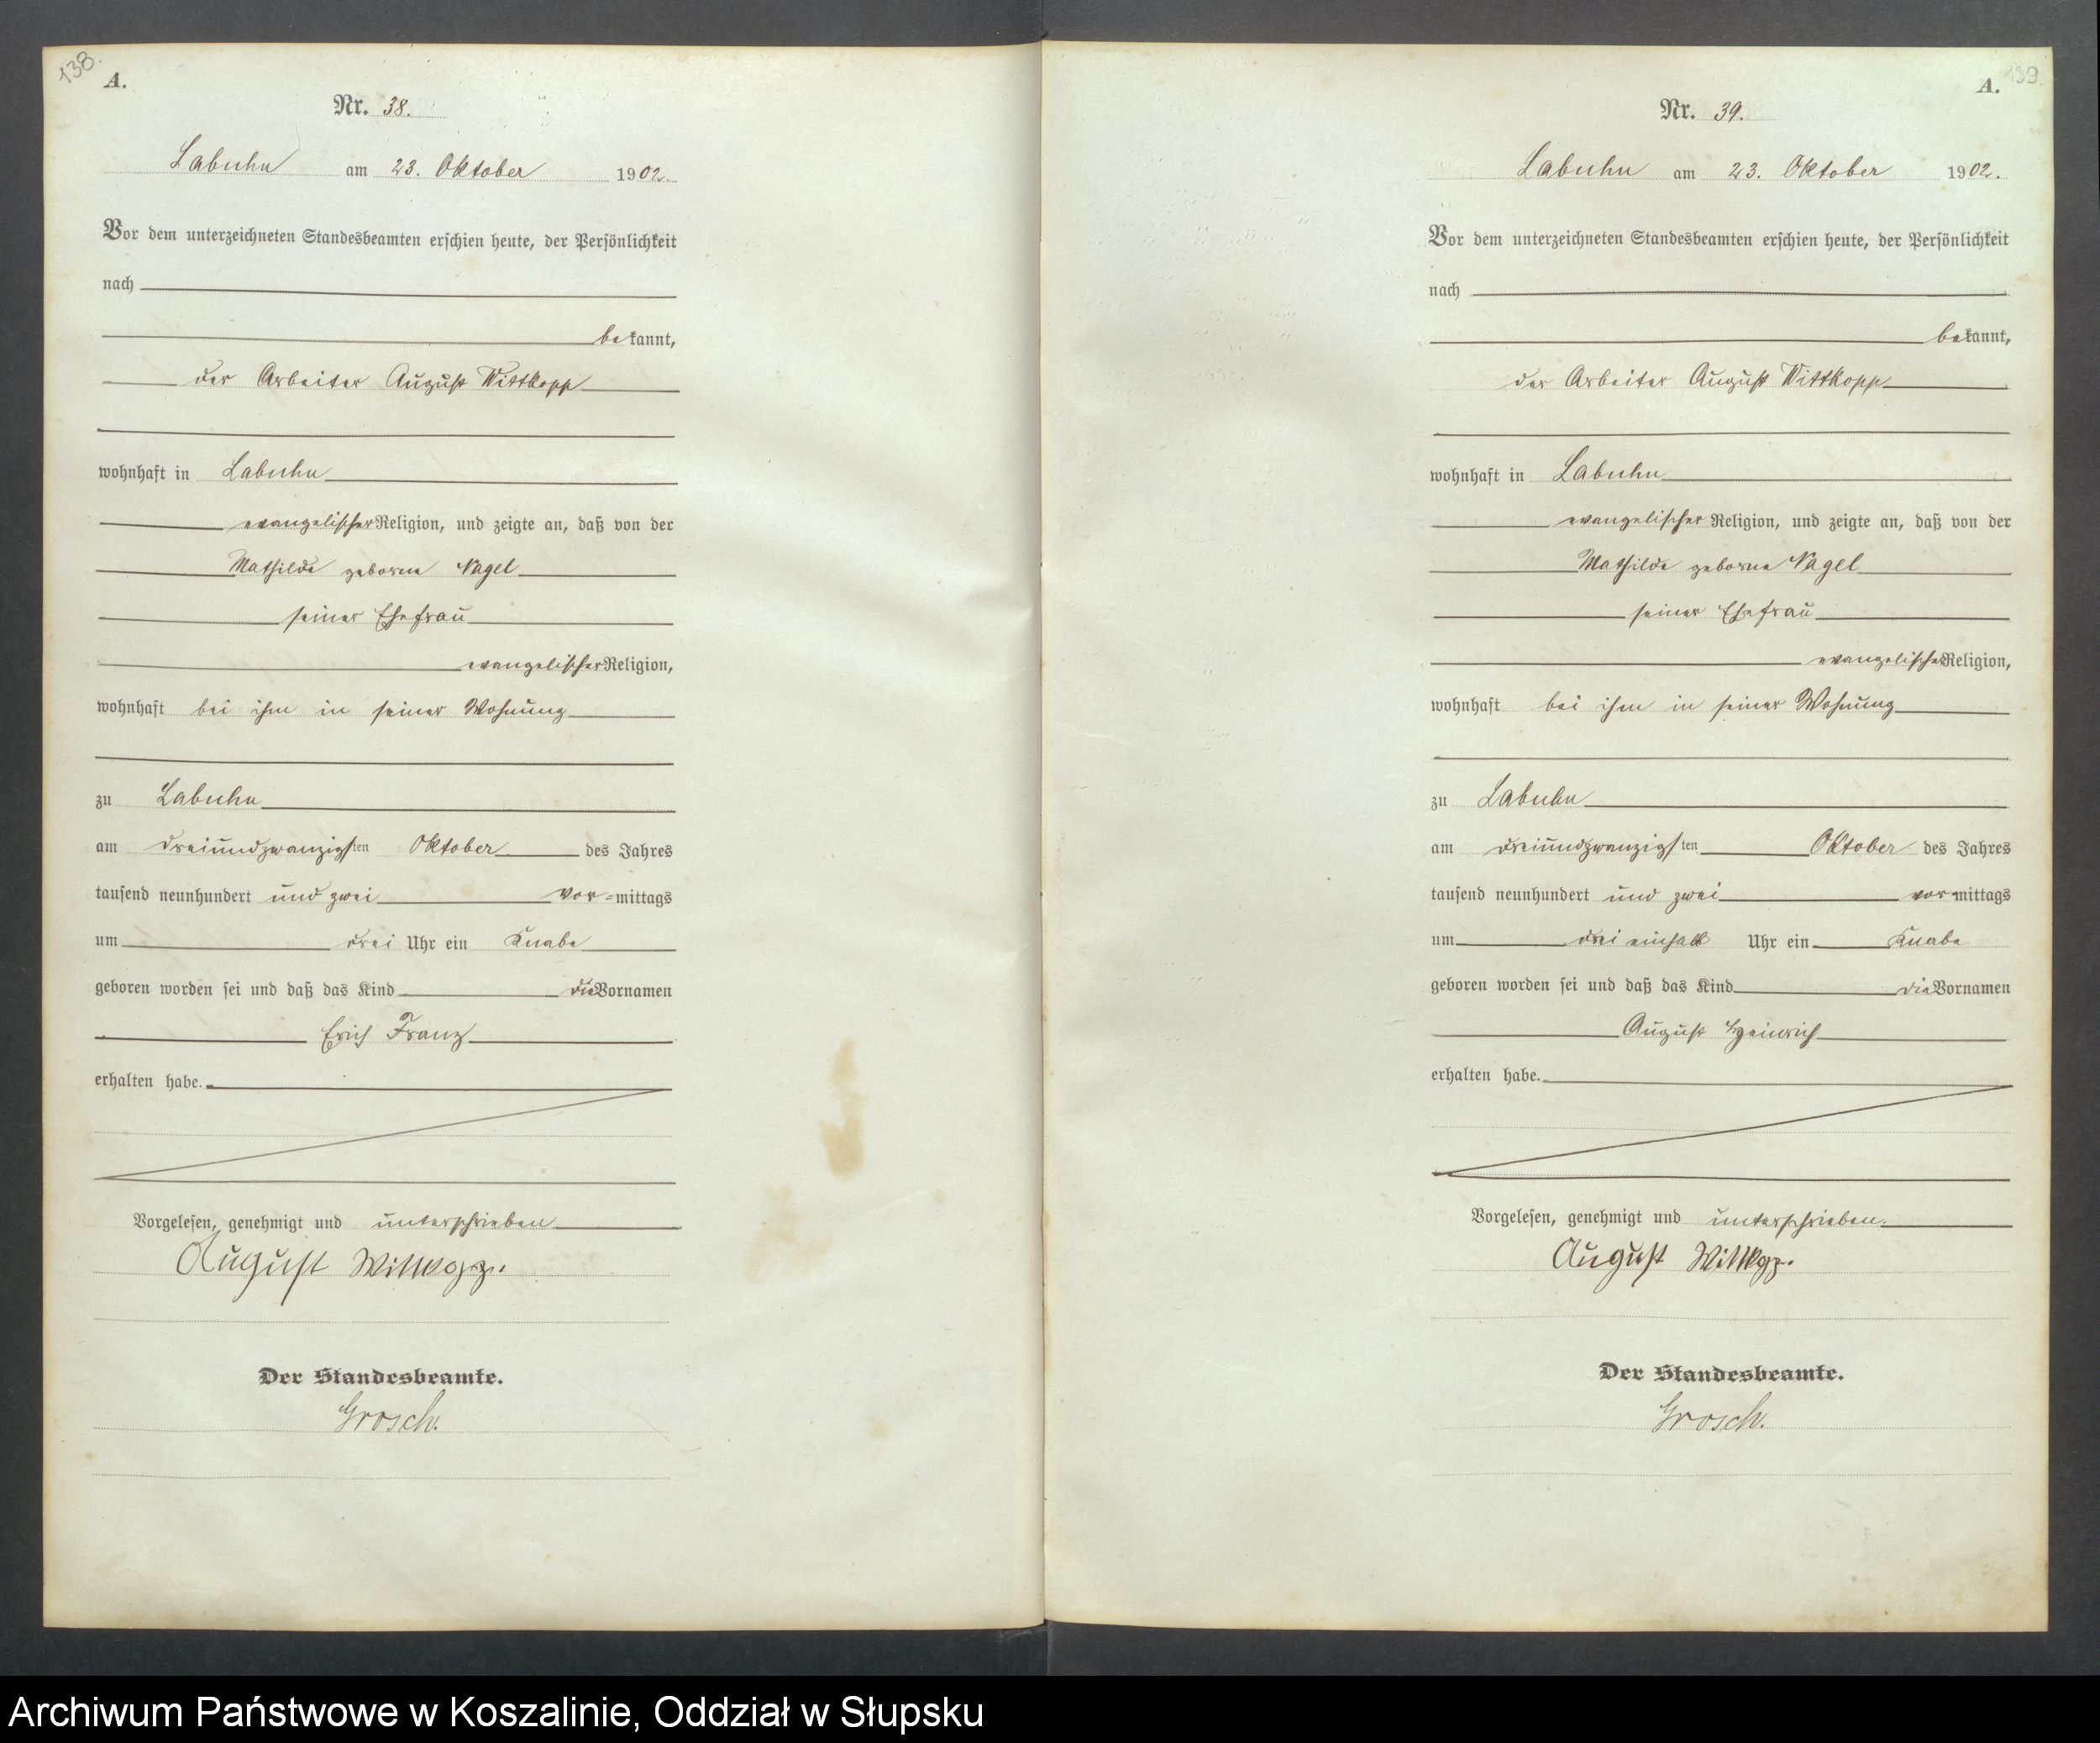 138.
A.
Nr. 38.
Labuhn am 23. Oktober 1902.
Vor dem unterzeichneten Standesbeamten erschien heute, der Persönlichkeit
nach
bekannt,
der Arbeiter August Wittkopp
wohnhaft in Labuhn
evangelischer Religion, und zeigte an, daß von der
Mathilde geborne Nagel
seiner Ehefrau
evangelischer Religion,
wohnhaft bei ihm in seiner Wohnung
zu Labuhn
am dreiundzwanzigsten Oktober des Jahres
tausend neunhundert und zwei vor=mittags
um drei Uhr ein Knabe
geboren worden sei und daß das Kind die Vornamen
Erich Franz
erhalten habe.
Vorgelesen, genehmigt und unterschrieben
August Wittkopp.
Der Standesbeamte.
Grosch.
139
A.
Nr. 39.
Labuhn am 23. Oktober 1902.
Vor dem unterzeichneten Standesbeamten erschien heute, der Persönlichkeit
nach
bekannt,
der Arbeiter August Wittkopp
wohnhaft in Labuhn
evangelischer Religion, und zeigte an, daß von der
Mathilde geborne Nagel
seiner Ehefrau
evangelischer Religion,
wohnhaft bei ihm in seiner Wohnung
zu Labuhn
am dreiundzwanzigsten Oktober des Jahres
tausend neunhundert und zwei vormittags
um drei einhalb Uhr ein Knabe
geboren worden sei und daß das Kind die Vornamen
August Heinrich
erhalten habe.
Vorgelesen, genehmigt und unterschrieben.
August Wittkopp.
Der Standesbeamte.
Grosch.
Archiwum Państwowe w Koszalinie, Oddział w Słupsku